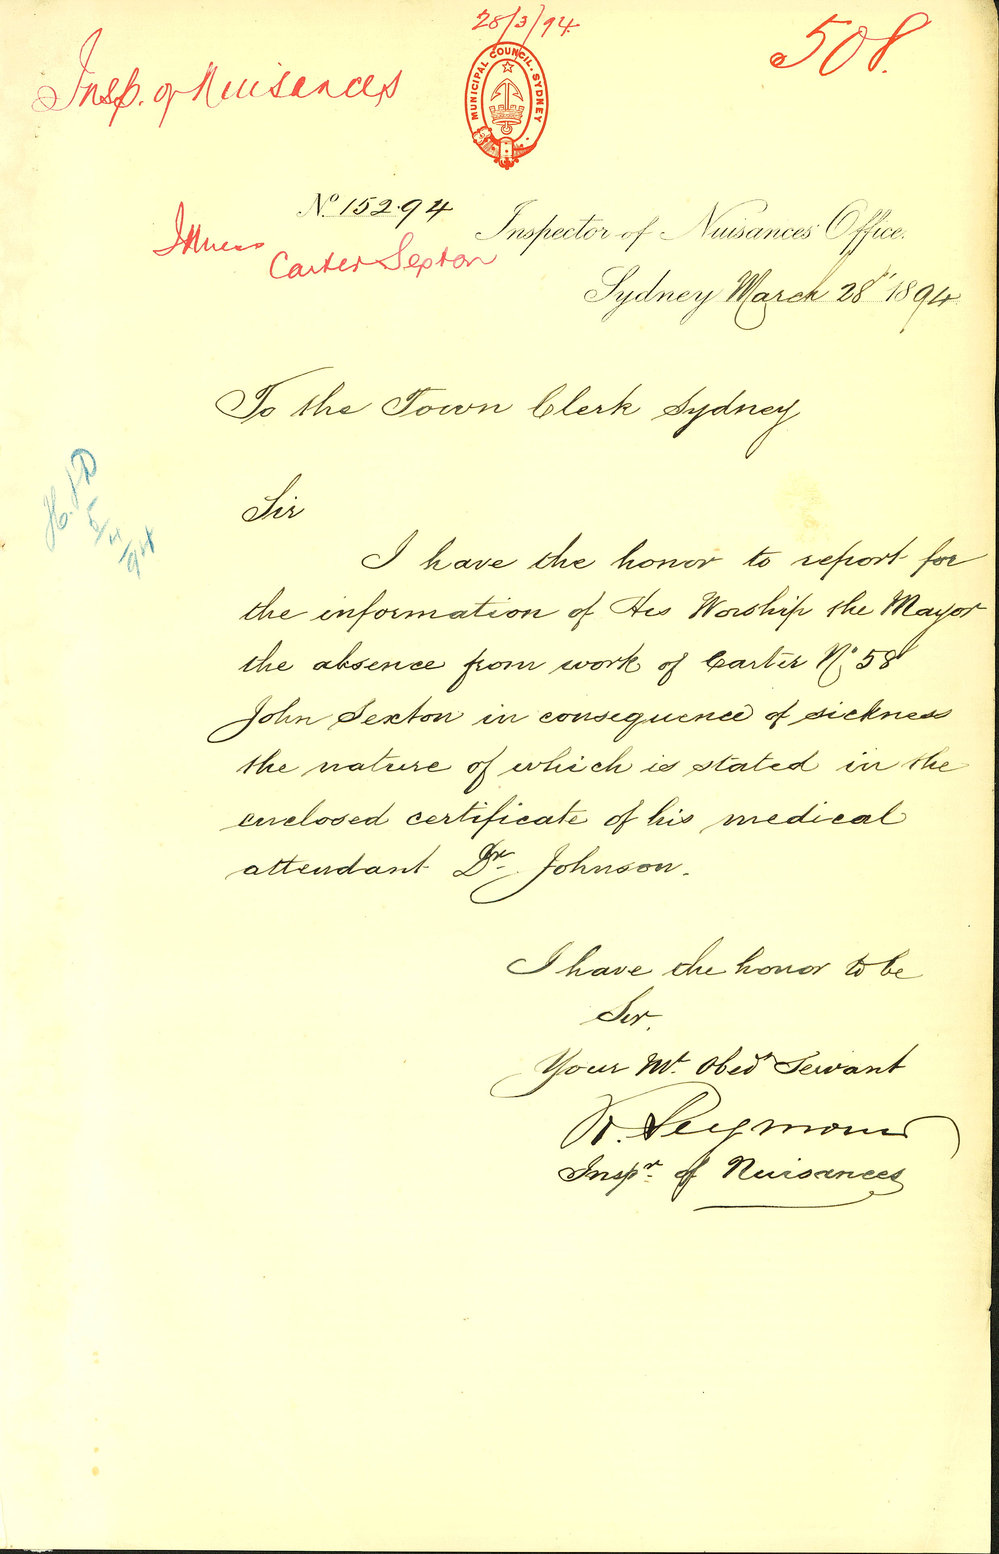 28/3/94
508.
Insp. of Nuisances
MUNICIPAL COUNCIL. SYDNEY
No. 152.94
Inspector of Nuisances Office.
Illness
Carter Sexton
Sydney March 28th 1894
To the Town Clerk Sydney
Sir
5/4/94
I have the honor to report for
the information of His Worship the Mayor
the absence from work of Carter No. 58
John Sexton in consequence of sickness
the nature of which is stated in the
enclosed certificate of his medical
attendant Dr. Johnson.
I have the honor to be
Sir,
Your Mt. Obedt Servant
R. Seymour
Inspr. of Nuisances